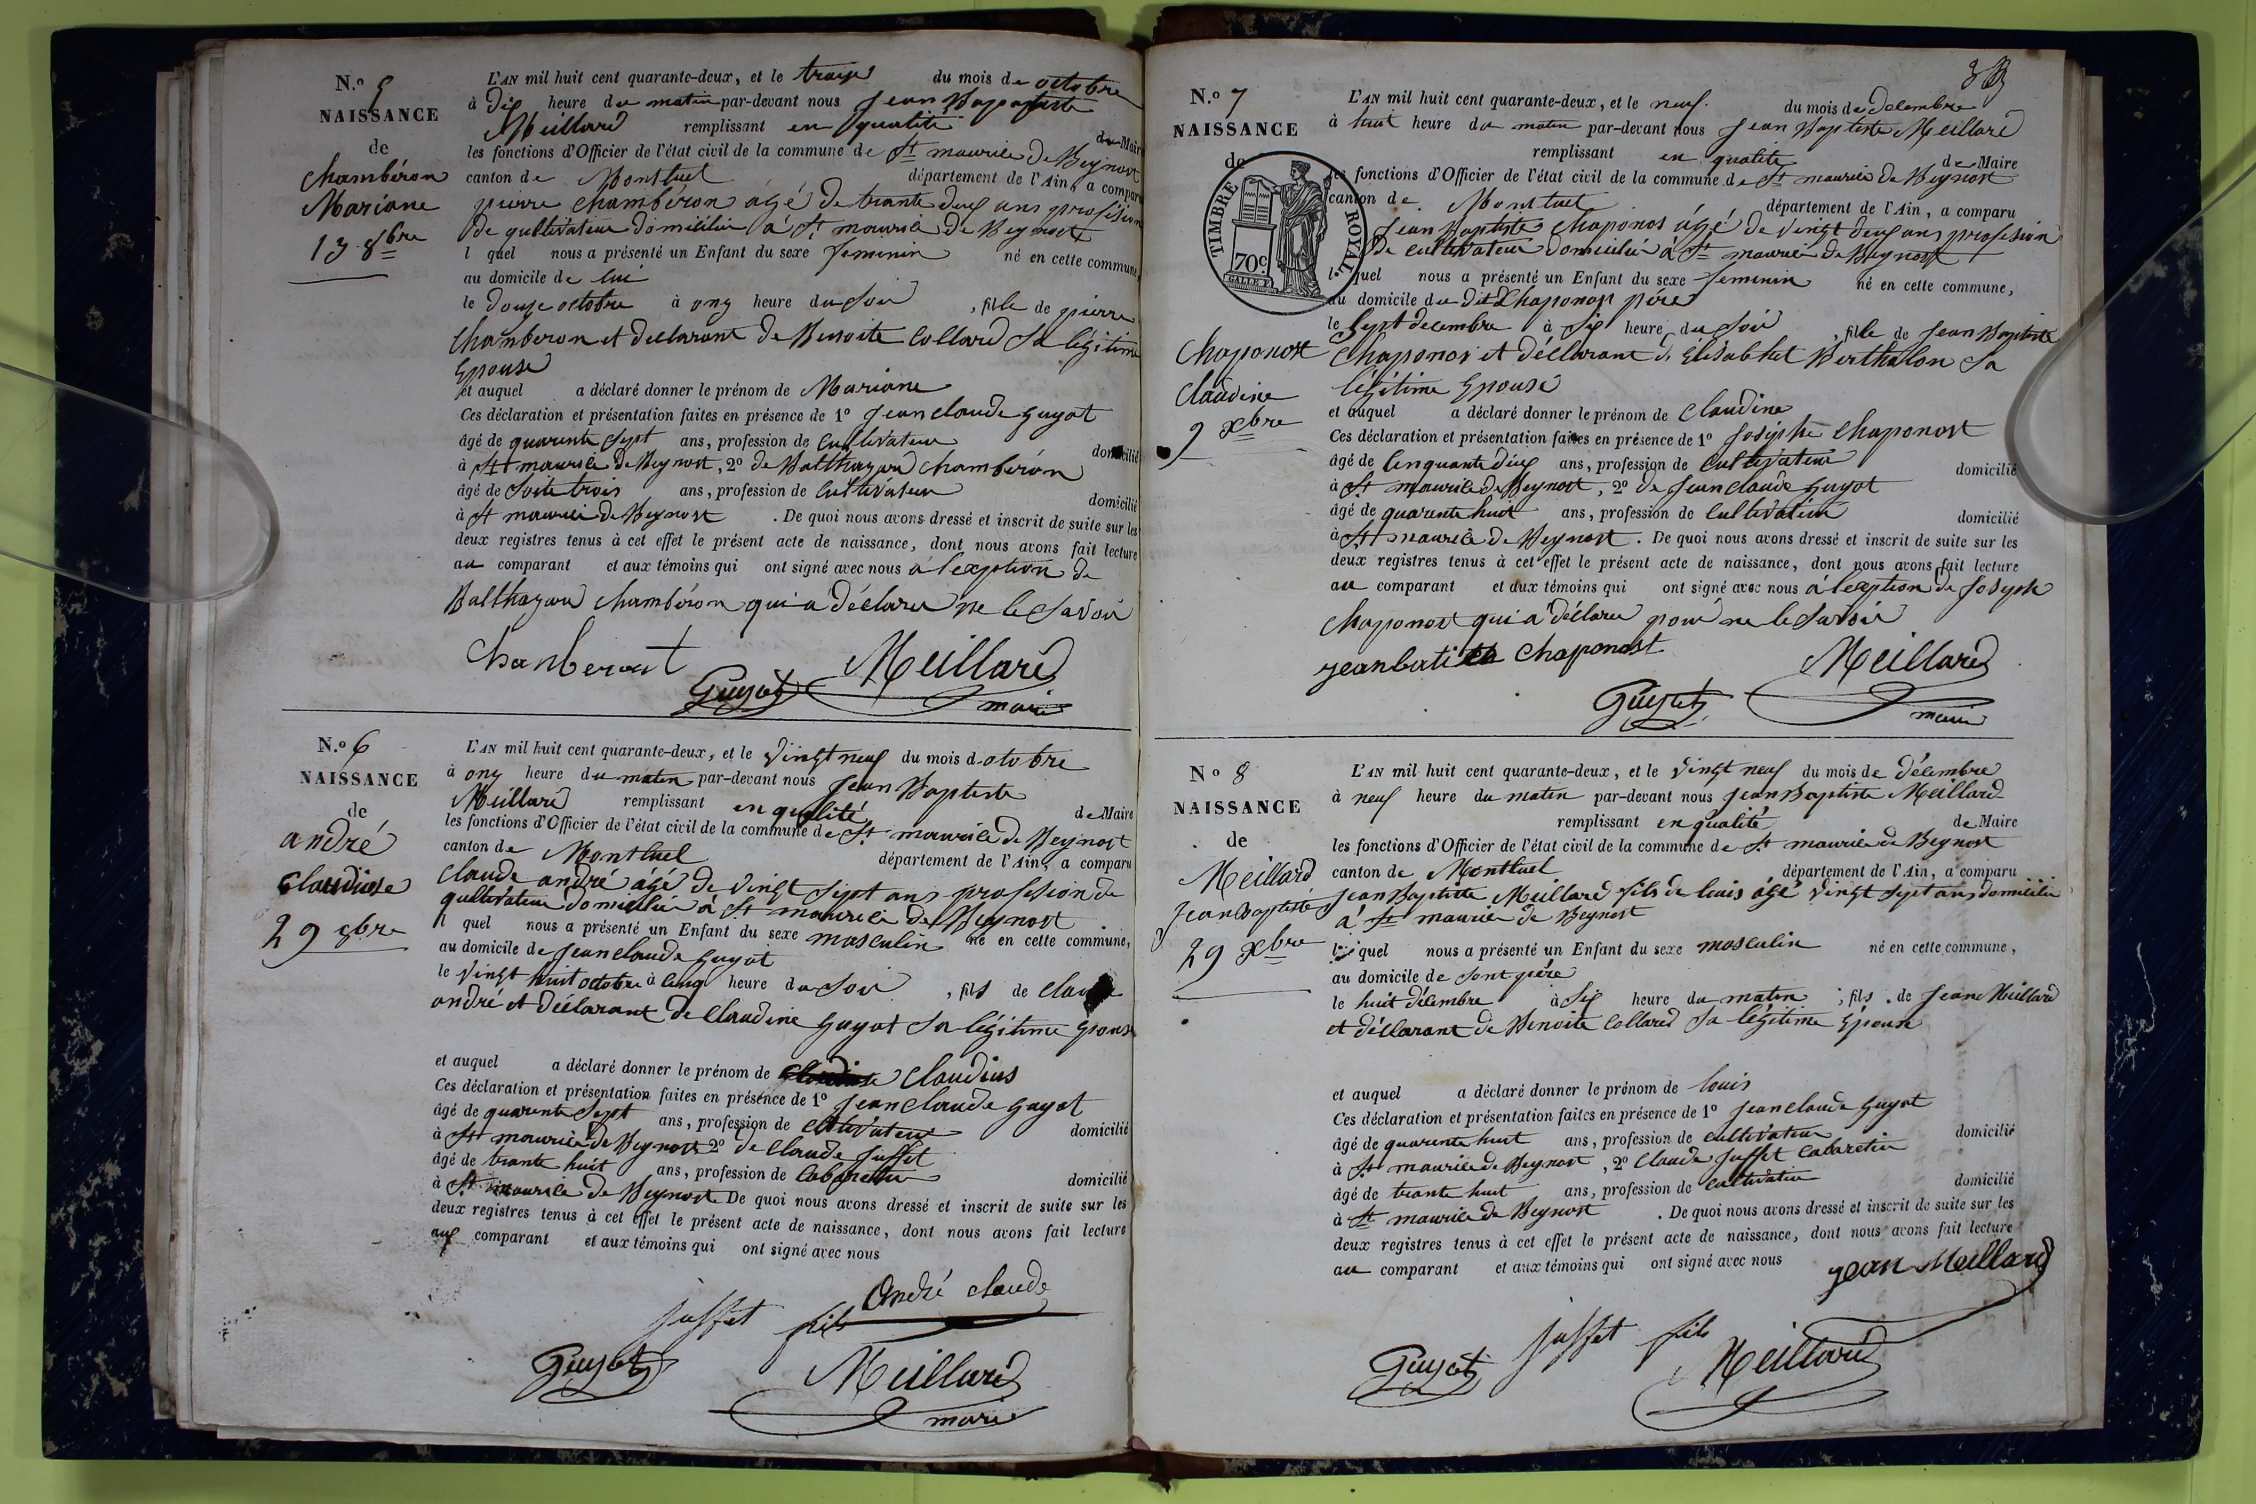 N.o 5
NAISSANCE
de
Chambéron
Mariane
13 8bre
L'AN mil huit cent quarante-deux, et le treize du mois de octobre
à dix heure du matin par-devant nous Jean Baptiste
Meillard remplissant en qualité de Maire
les fonctions d'Officier de l'état civil de la commune de St maurice de Beynost
canton de Montluel département de l'Ain, a comparu
pierre chambéron âgé de trante deux ans profession
de qultivateur domicilié à St maurice de Beynost
l quel nous a présenté un Enfant du sexe feminin né en cette commune,
au domicile de lui
le douze octobre à onz heure du soir , fille de pierre
chamberon et declarant de Benoite Collard sa légitime
Epouse
et auquel a déclaré donner le prénom de Mariane
Ces déclaration et présentation faites en présence de 1o Jean claude guyot
âgé de quarente sept ans, profession de cultivateur domicilié
à St maurice de Beynost, 2o de Balthazard chambéron
âgé de soite trois ans, profession de cultivateur domicilié
à St maurice de Beynost . De quoi nous avons dressé et inscrit de suite sur les
deux registres tenus à cet effet le présent acte de naissance, dont nous avons fait lecture
au comparant et aux témoins qui ont signé avec nous à l'exption de
Balthazard chambéron qui a déclarer ne le savoir
Chanberont
Guyot Meillard
maire
N.o 6
NAISSANCE
de
andré
29 8bre
L'AN mil huit cent quarante-deux, et le vingt neuf du mois d'otobre
à onz heure du matin par-devant nous Jean Baptiste
Meillard remplissant en qualité de Maire
les fonctions d'Officier de l'état civil de la commune de St maurice de Beynost
canton de Montluel département de l'Ain, a comparu
claude andré âgé de vingt sept ans profession de
qultivateur domicilié à St maurice de Beynost
l quel nous a présenté un Enfant du sexe masculin né en cette commune,
au domicile de Jean claude guyot
le vingt huit octobre à cinq heure du soir , fils de claude
andré et déclarant de Claudine guyot sa légitime Epouse
et auquel a déclaré donner le prénom de claudius
Ces déclaration et présentation faites en présence de 1o Jean claude guyot
âgé de quarente sept ans, profession de cultivateur domicilié
à St maurice de Beynost 2o de claude Juffet
âgé de trante huit ans, profession de cabaretier domicilié
à St maurice de Beynost De quoi nous avons dressé et inscrit de suite sur les
deux registres tenus à cet effet le présent acte de naissance, dont nous avons fait lecture
aux comparant et aux témoins qui ont signé avec nous
André claude
Juffet fils
Guyot Meillard
maire
N.o 7
NAISSANCE
de
TIMBRE ROYAL
70 c.
Chaponost
Claudine
9 Xbre
L'AN mil huit cent quarante-deux, et le neuf du mois de décembre
à huit heure du matin par-devant nous Jean Baptiste Meillard
remplissant en qualité de Maire
les fonctions d'Officier de l'état civil de la commune de St maurice de Beynost
canton de Montluel département de l'Ain, a comparu
Jean Baptiste chaponos âgé de vingt deux ans profession
de cultivateur domicilié à St maurice de Beynost
l quel nous a présenté un Enfant du sexe feminin né en cette commune,
au domicile du dit Chaponost père
le sept decembre à six heure du soir , fille de Jean Baptiste
Chaponos et déclarant d' Elisabhet Berthalon sa
légitime Epouse
et auquel a déclaré donner le prénom de Claudine
Ces déclaration et présentation faites en présence de 1o Josephe Chaponost
âgé de cinquante deux ans, profession de cultivateur domicilié
à St maurice de Beynost, 2o de Jean claude guyot
âgé de quarente huit ans, profession de cultivateur domicilié
à St maurice de Beynost. De quoi nous avons dressé et inscrit de suite sur les
deux registres tenus à cet effet le présent acte de naissance, dont nous avons fait lecture
au comparant et aux témoins qui ont signé avec nous à l'exption de Joseph
Chaponost qui a déclarer ne le savoir
jean chaponost Meillard
Guyot maire
No 8
NAISSANCE
de
Meillard
Jean Baptiste
29 Xbre
L'AN mil huit cent quarante-deux, et le vingt neuf du mois de décembre
à neuf heure du matin par-devant nous Jean Baptiste Meillard
remplissant en qualité de Maire
les fonctions d'Officier de l'état civil de la commune de St maurice de Beynost
canton de Montluel département de l'Ain, a comparu
Jean Baptiste Meillard fils de louis âgé vingt sept ans domicilié
à St maurice de Beynost
l quel nous a présenté un Enfant du sexe masculin né en cette commune,
au domicile de sont père
le huit décembre à six heure du matin , fils de Jean Meillard
et déclarant de Benoite Collard sa légitime Epouse
et auquel a déclaré donner le prénom de louis
Ces déclaration et présentation faites en présence de 1o Jean claude guyot
âgé de quarente huit ans, profession de cultivateur domicilié
à St maurice de Beynost, 2o Claude Juffet cabaretier
âgé de trante huit ans, profession de cultivateur domicilié
à St maurice de Beynost . De quoi nous avons dressé et inscrit de suite sur les
deux registres tenus à cet effet le présent acte de naissance, dont nous avons fait lecture
au comparant et aux témoins qui ont signé avec nous
jean Meillard
Juffet fils
Guyot Meillard